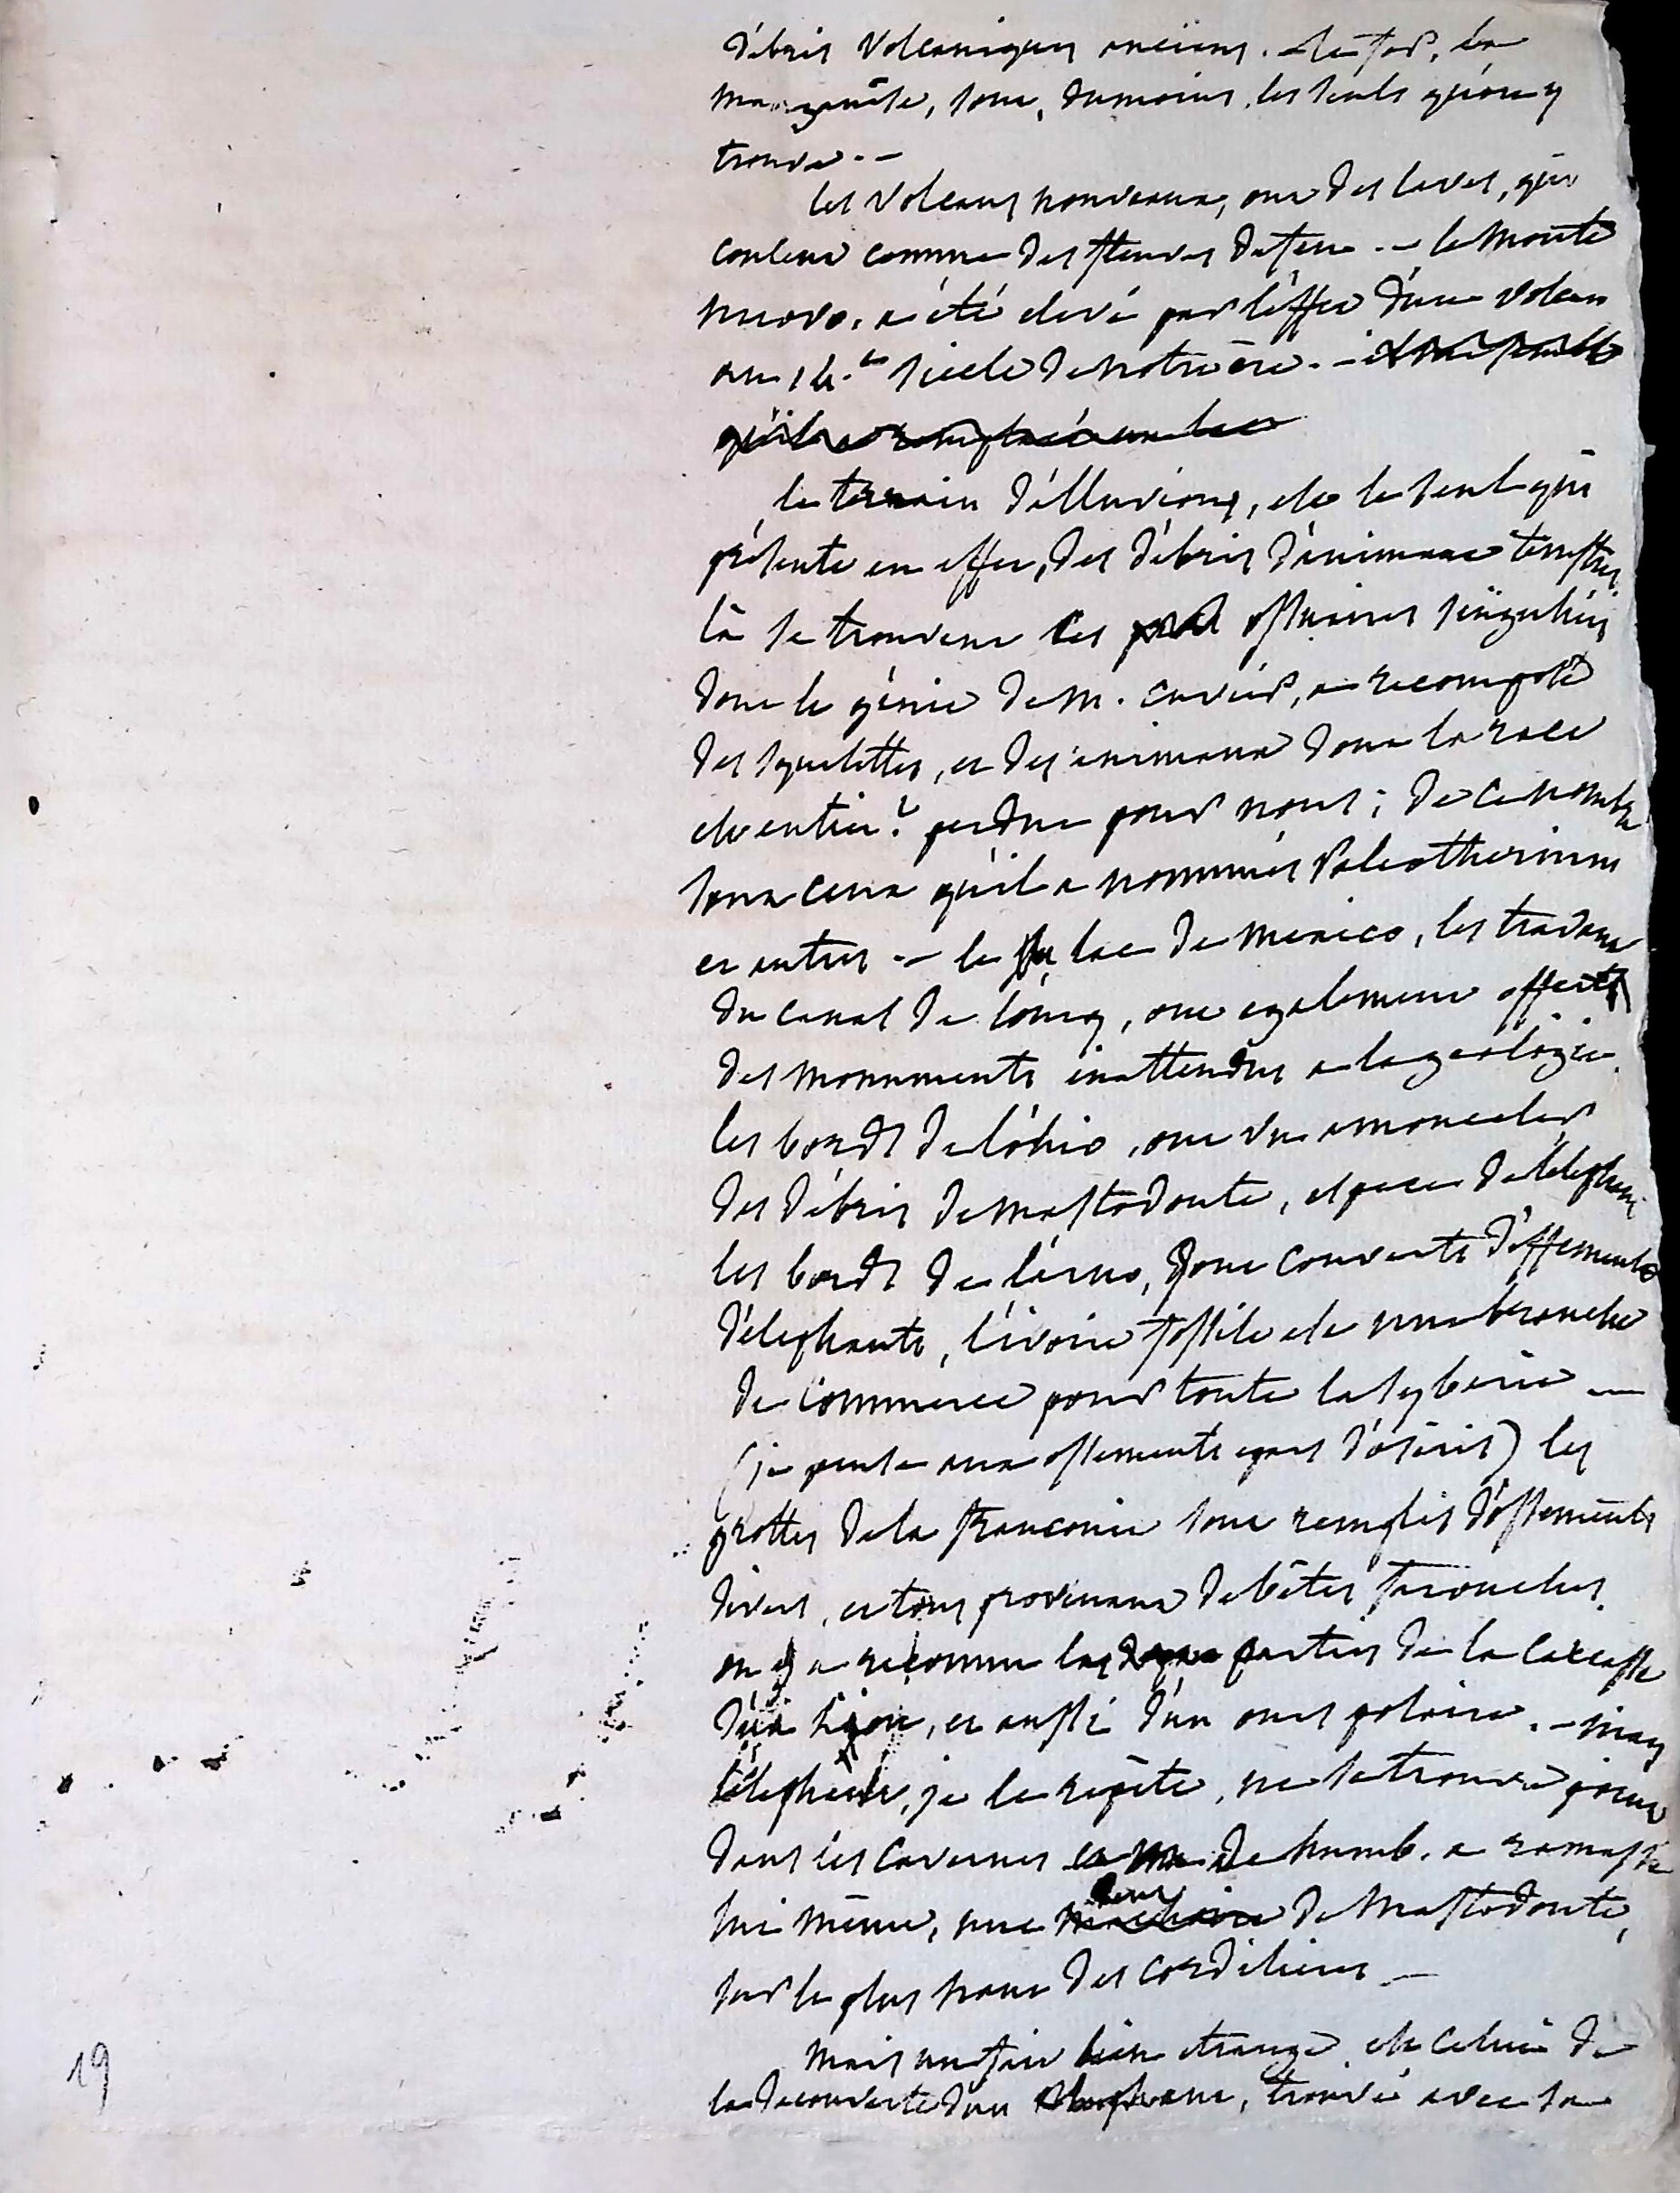 débris volcaniques anciens. le fer, la
manganèse, sont, dumoins, les seuls qu'on y
trouve. —
les volcans nouveaux, ont des laves, qui
coulent comme des fleuves de feu. — le monte
nuovo, a été elevé par l'effet d'un volcan
au 16.e siecle de notre ère. — il
qu'il a remplacé un lac
le terrain d'alluvions, est le seul qui
présente en effet, des débris d'animaux terrestres.
là se trouvent les ossuaires singuliers
dont le génie de m. cuvier, a recomposé
des squelettes, et des animaux dont la race
est entier.t perdue pour nous; de ce nombre
sont ceux qu'il a nommés Paleotherium
et autres — le lac de mexico, les travaux
du canal de l'ourq, ont egalement offerts
des monuments inattendus a la geologie.
les bords de l'ohio, ont vu amonceler
des débris de mastodonte, espece de l'elephant
les bords de l'arno, sont couverts d'ossements
d'elephants, l'ivoire fossile est une branche
de commerce pour toute la syberie —
(je pense aux ossements epars d'osiris) les
grottes de la franconie sont remplis d'ossements
divers, et tous provenant de bêtes farouches.
on y a reconnu les parties de la carcasse
d'un lion, et aussi d'un ours polaire. — mais
l'elephant, je le repète, ne se trouve point
dans les cavernes de humb. a ramassé
lui même, une dent machoire de mastodonte,
sur le plus haut des cordilieres —
mais un fait bien etrange est celui de
la decouverte d'un elephant, trouvé avec sa
19